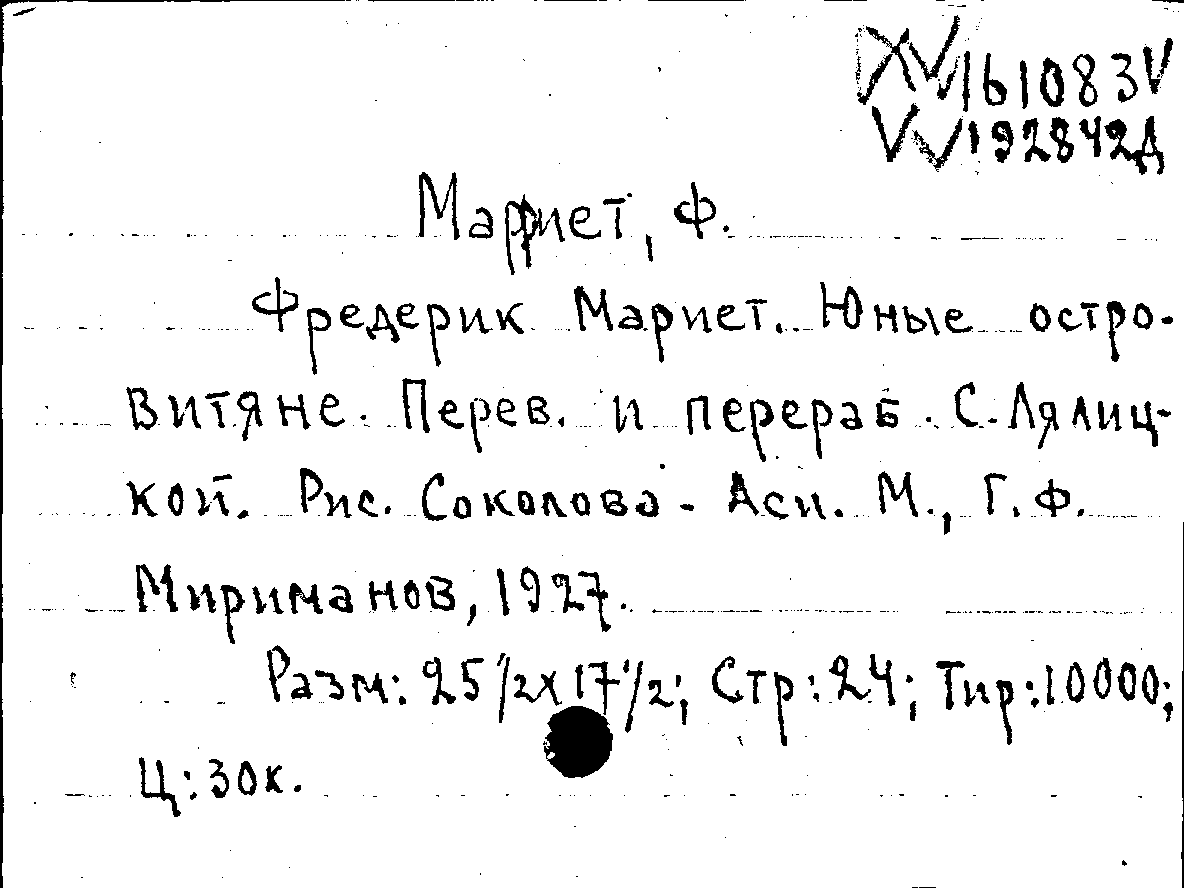 XV 161083V
VV 192842Д
Марриет, Ф.
Фредерик Мариет. Юные остро-
витяне. Перев. и перераб. С. Лялиц-
кой. Рис. Соколова - Аси. М., Г. Ф.
Мириманов, 1927.
Разм: 25 1/2 x 17 1/2; Стр: 24; Тир: 10000;
Ц: 30к.